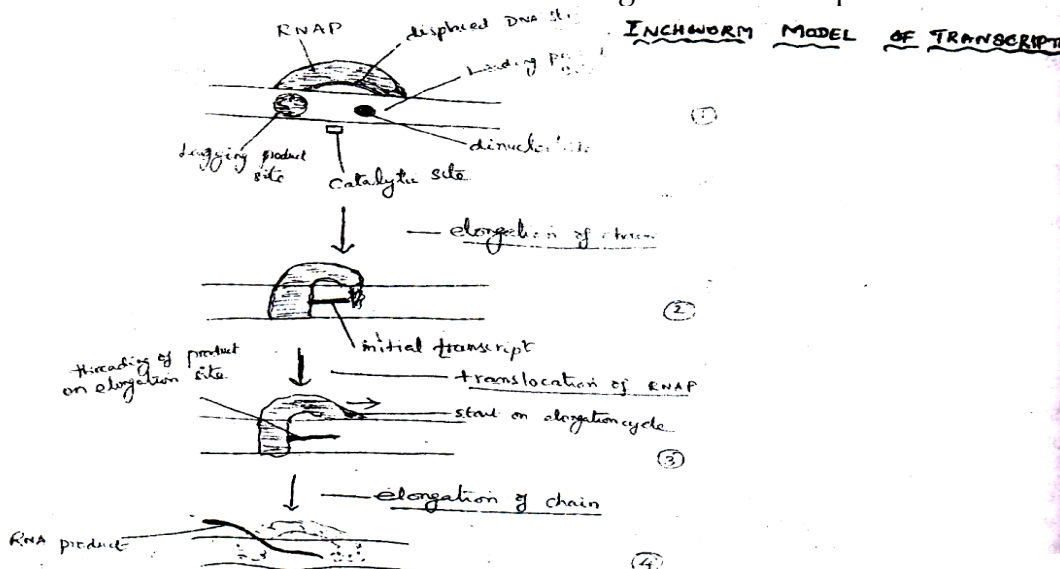 INCHWORM MODEL OF TRANSCRIPT
RNAP
displaced DNA
①
Lagging product
site
Catalytic site
elongation of
②
initial transcript
threading of product
on elongation site
translocation of RNAP
start on elongation cycle
③
elongation of chain
RNA product
④